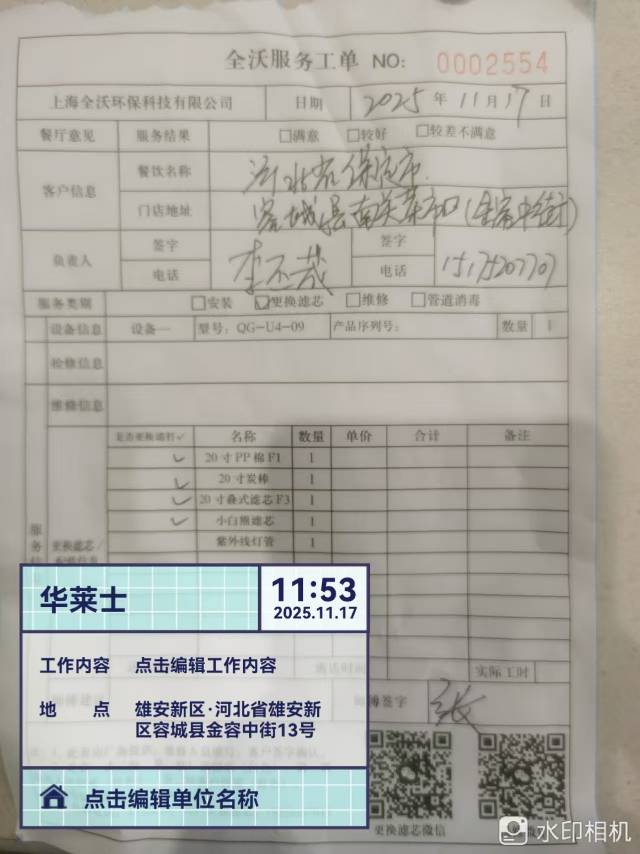 全沃服务工单 NO: 0002554
上海全沃环保科技有限公司 日期 2025年11月17日
餐厅意见 服务结果 □满意 □较好 □较差不满意
客户信息 餐饮名称 河北省保定市
门店地址 容城县南关菜市口(金容中街)
负责人 签字 签字
电话 李丕哉 电话 15175207707
服务类别 □安装 ☑更换滤芯 □维修 □管道消毒
设备信息 设备一 型号: QG-U4-09 产品序列号: 数量 1
检修信息
维修信息
是否更换请打✓ 名称 数量 单价 合计 备注
✓ 20寸PP棉F1 1
✓ 20寸炭棒 1
✓ 20寸叠式滤芯F3 1
✓ 小白熊滤芯 1
紫外线灯管 1
服务
更换滤芯/
华莱士 11:53
2025.11.17
工作内容 点击编辑工作内容
地 点 雄安新区·河北省雄安新
区容城县金容中街13号
点击编辑单位名称
实际工时
签字 张
更换滤芯微信
水印相机